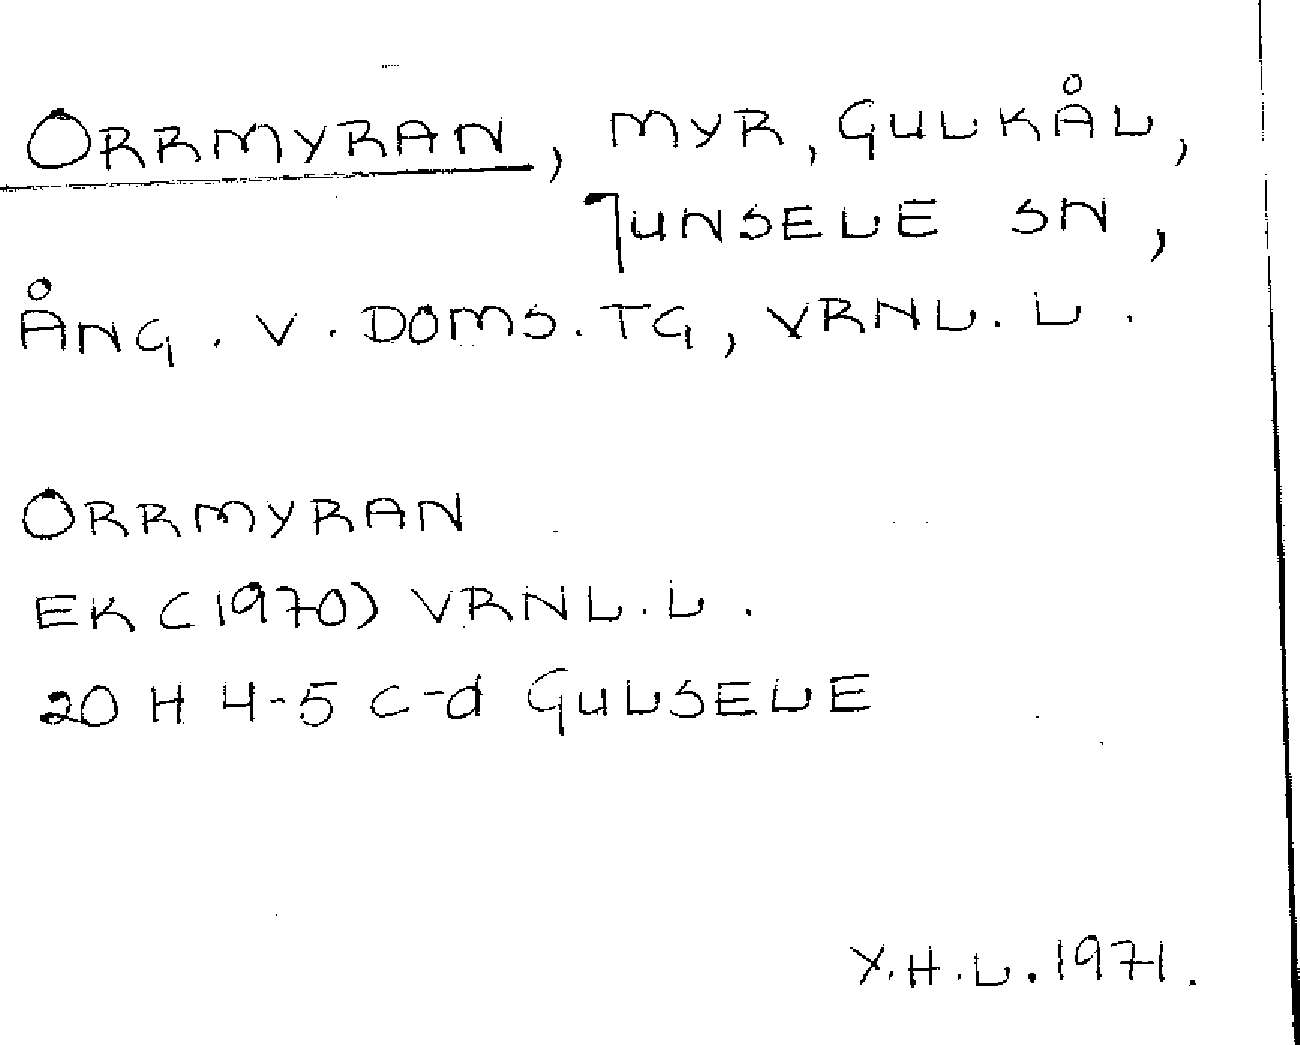 ORRMYRAN, MYR, GULKÅL,
JUNSELE SN,
ÅNG. V. DOMS. TG, VRNL. L.
ORRMYRAN
EK (1970) VRNL. L.
20 H 4-5 c-d GULSELE
Y. H. L. 1971.